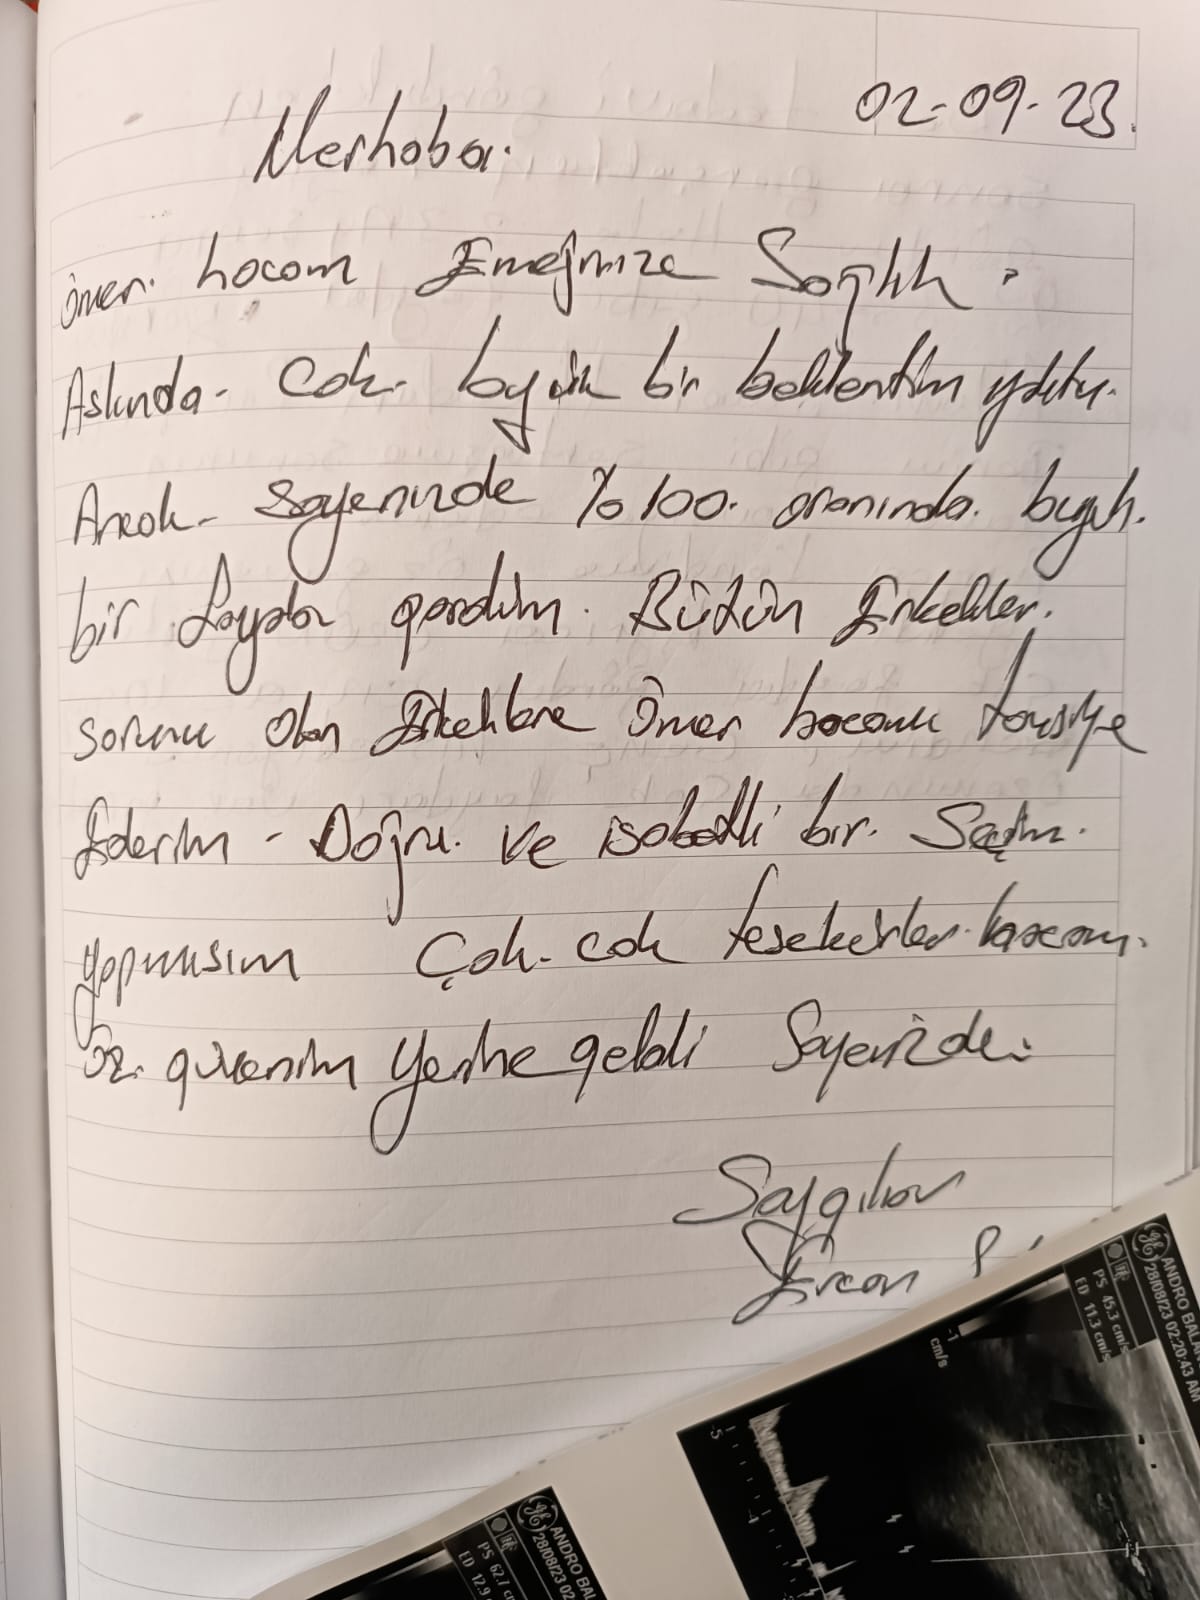 02-09-23.
Merhaba.
Ömer. hocam Emeğinize Sağlık.
Aslında. Cok. büyük bir beklentim yoktu.
Ancak. sayenizde %100. oranında. büyük.
bir fayda gördüm. Bütün Erkekler.
sorunu olan Erkeklere Ömer hocamı tavsiye
Ederim. Doğru. ve isabetli bir. Seçim.
yapmışım Çok. cok teşekkürler. hocam.
Öz. güvenim Yerine geldi Sayenizde.
Saygılar
Ercan
ANDRO BALAN
28/08/23 02:20:43 AM
PS 45.3 cm/s
ED 11.3 cm/s
-1
cm/s
-5
-4
ANDRO BA
28/08/23 02
PS 62.7 cm
ED 12.9